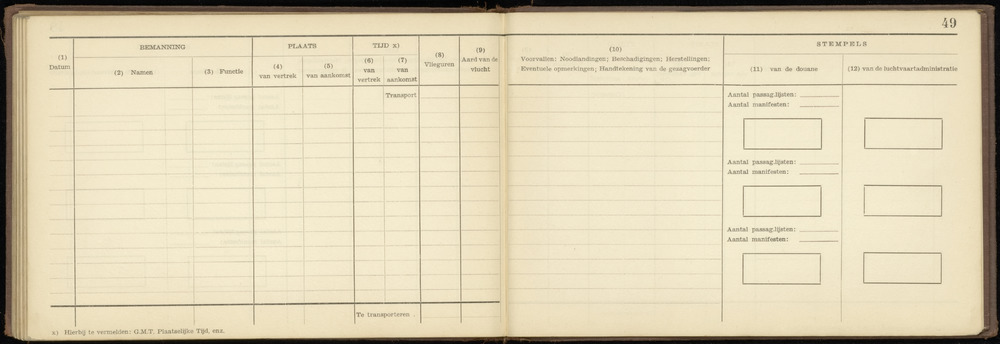 49
BEMANNING
PLAATS
TIJD x)
STEMPELS
(1)
Datum
(2) Namen
(3) Functie
(4)
van vertrek
(5)
van aankomst
(6)
van
vertrek
(7)
van
aankomst
(8)
Vlieguren
(9)
Aard van de
vlucht
(10)
Voorvallen: Noodlandingen; Beschadigingen; Herstellingen;
Eventuele opmerkingen; Handtekening van de gezagvoerder
(11) van de douane
(12) van de luchtvaartadministratie
Transport
Aantal passag.lijsten:
Aantal manifesten:
Aantal passag.lijsten:
Aantal manifesten:
Aantal passag.lijsten:
Aantal manifesten:
Te transporteren .
x) Hierbij te vermelden: G.M.T. Plaatselijke Tijd, enz.